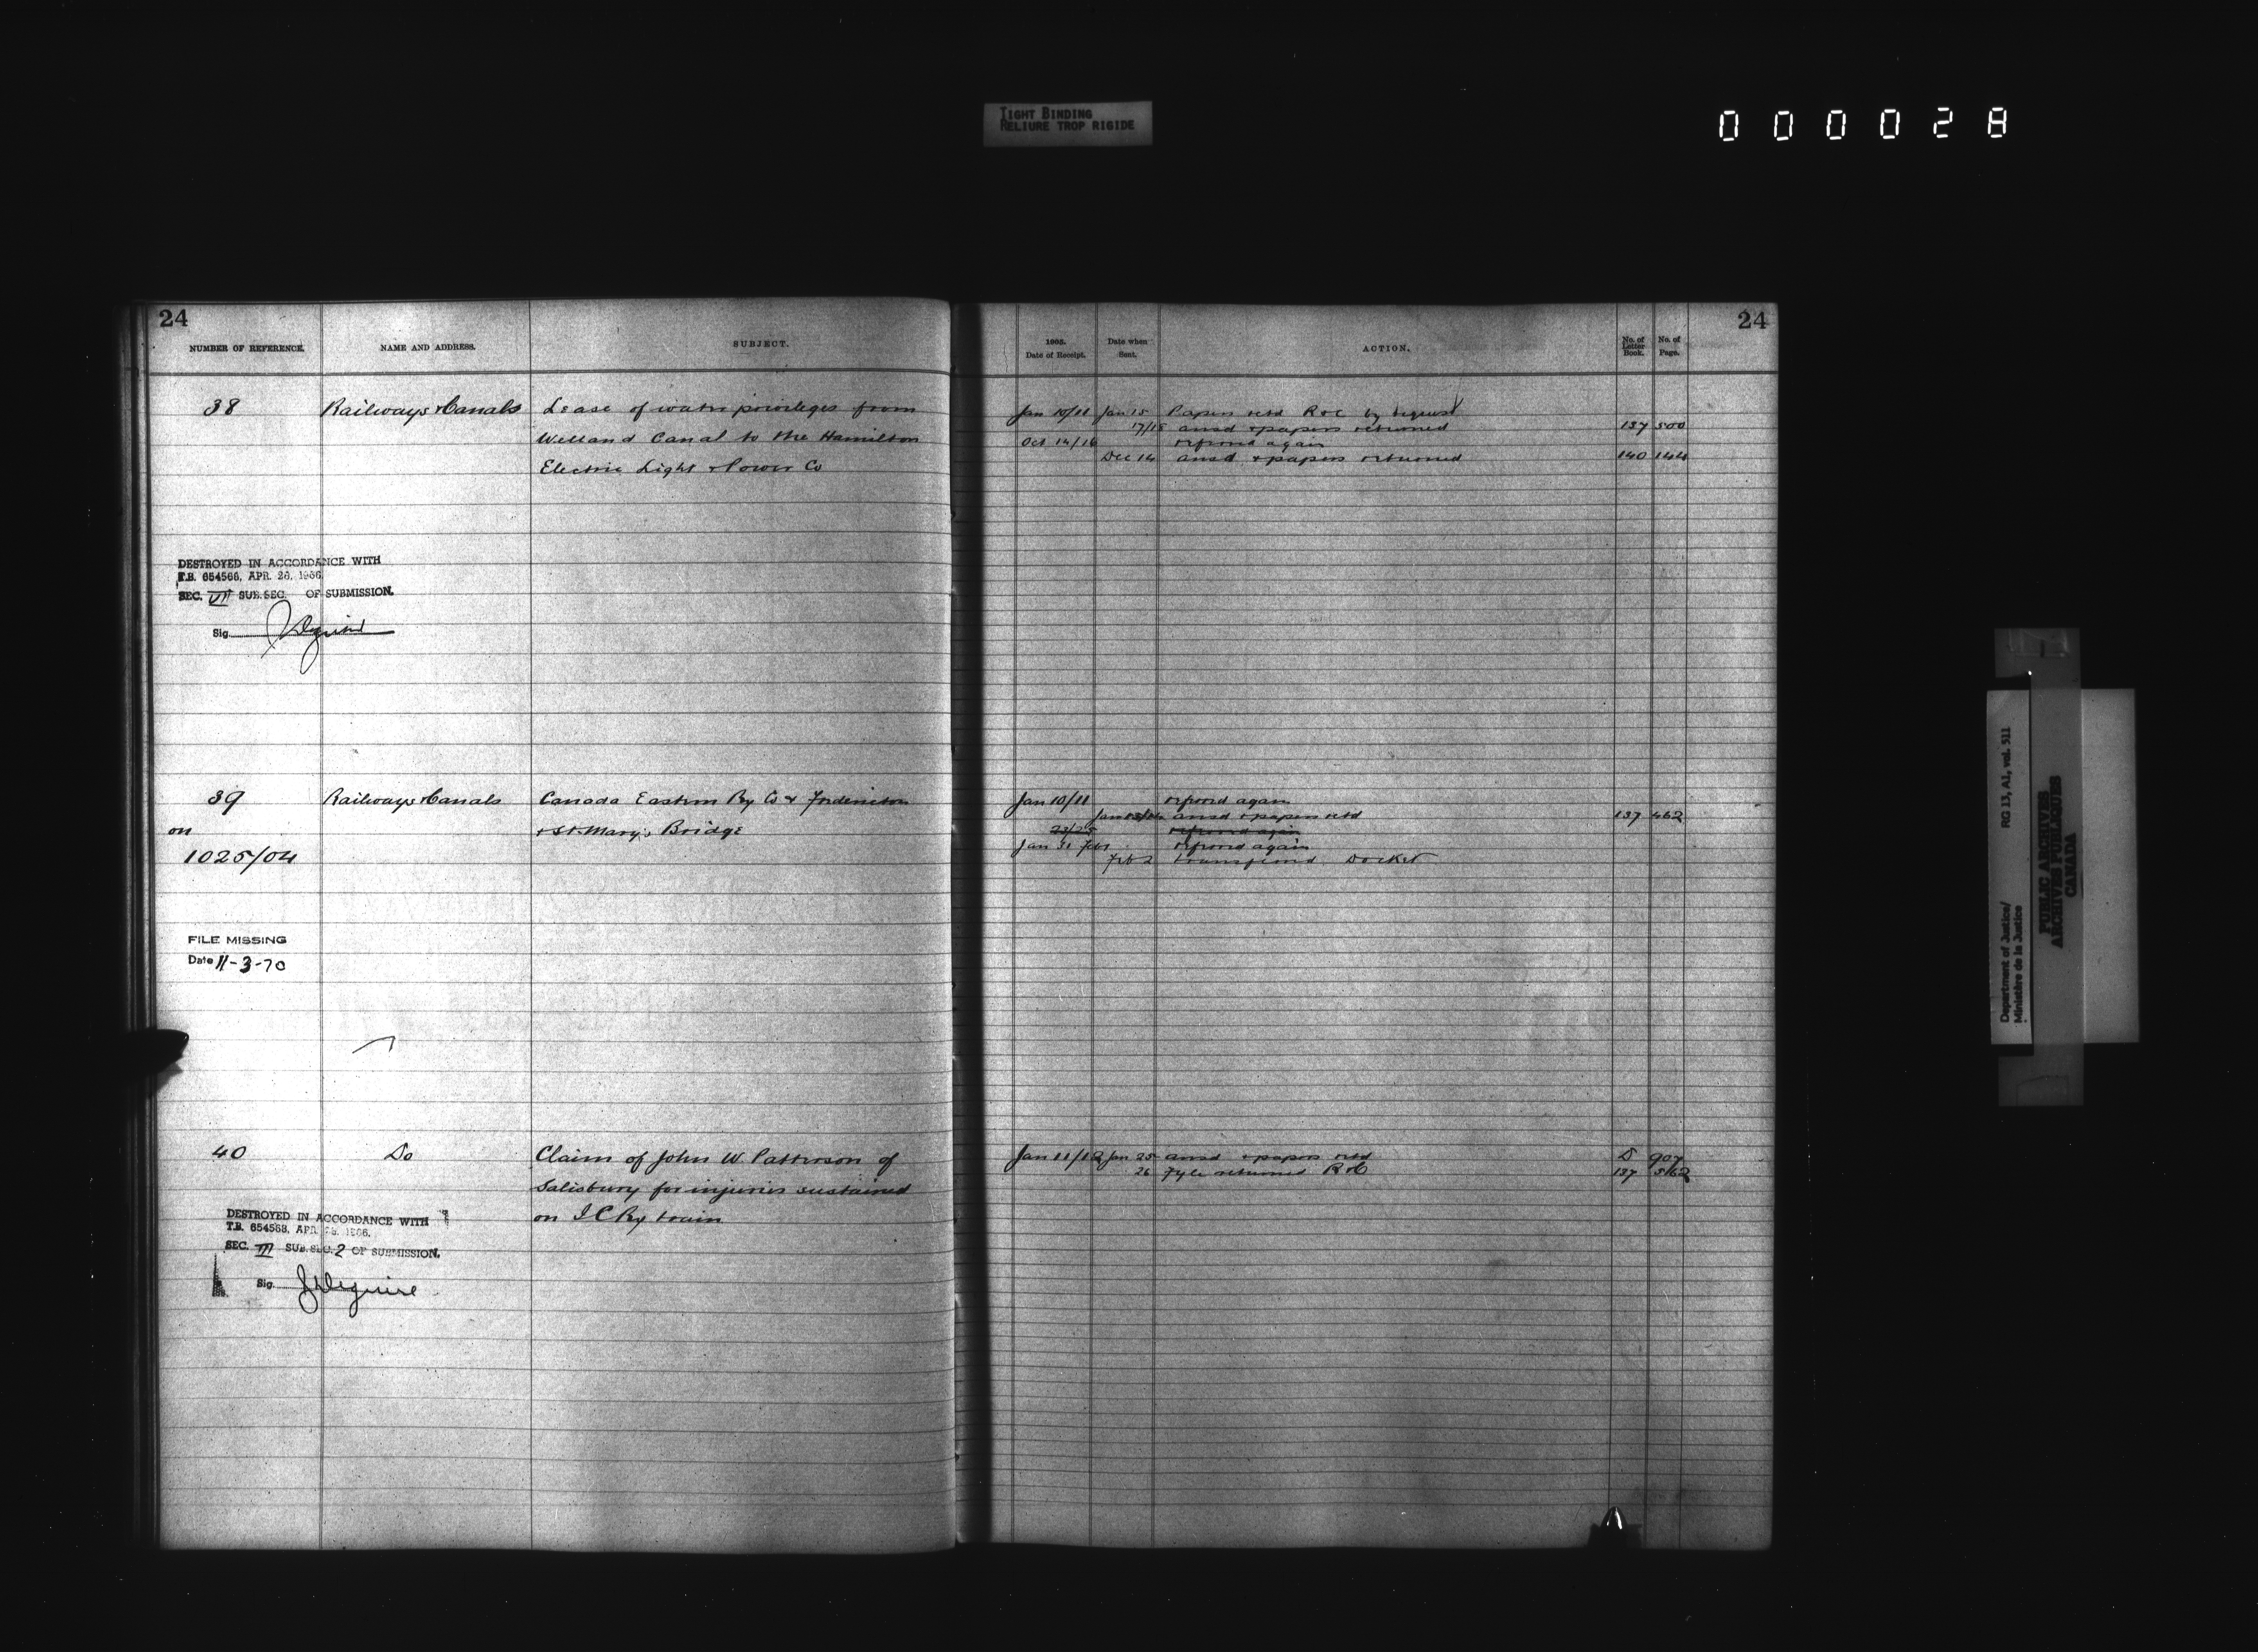 TIGHT BINDING
RELIURE TROP RIGIDE
000028
24
NUMBER OF REFERENCE.
NAME AND ADDRESS.
SUBJECT.
38
Railways & Canals
Lease of water privileges from
Welland Canal to the Hamilton
Electric Light & Power Co
DESTROYED IN ACCORDANCE WITH
T.B. 654566, APR. 26, 1966
SEC. VII SUB.SEC. OF SUBMISSION.
Sig.
39
on
1025/04
Railways & Canals
Canada Eastern Ry Co & Fredericton
& St. Mary's Bridge
FILE MISSING
Date 11-3-70
40
Do
Claim of John W. Patterson of
Salisbury for injuries sustained
on I C Ry train
DESTROYED IN ACCORDANCE WITH
T.B. 654568, APR. 1966.
SEC. III SUB.SEC. 2 OF SUBMISSION.
Sig.
24
1905.
Date of Receipt.
Date when
Sent.
ACTION.
No. of
Letter
Book.
No. of
Page.
Jan 10/11 Jan 15 Papers retd R & C by request
17/18 ansd & papers returned 137 500
Oct 14/16 referred again
Dec 14 ansd & papers returned 140 144
Jan 10/11 referred again
Jan ansd & papers retd 137 462
23/25 referred again
Jan 31 Feb 1 referred again
Feb 2 transferred Docket
Jan 11/12 Jan 25 ansd & papers retd D 907
26 Fyle returned R & C 137 562
Department of Justice/
Ministère de la Justice
RG 13, A1, vol. 511
PUBLIC ARCHIVES
ARCHIVES PUBLIQUES
CANADA